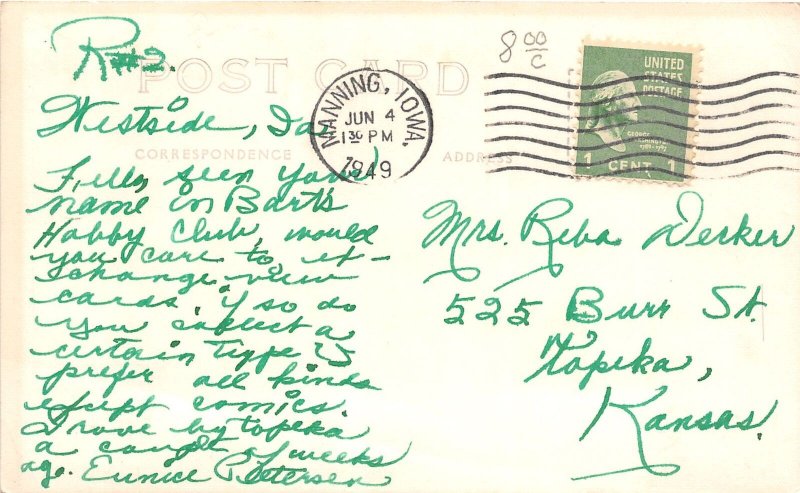 R#2.
POST CARD
8 00/c
UNITED
STATES
POSTAGE
GEORGE
WASHINGTON
1789-1797
1 CENT 1
MANNING, IOWA.
JUN 4
1 30 PM
1949
Westside, Ia.
CORRESPONDENCE
ADDRESS
seen your
name in Bart's
Hobby Club, would
you care to ex-
change view
cards, if so do
you collect a
certain type I
prefer all kinds
exept comics.
I rove by topeka
a coupl of weeks
ago. Eunice Petersen
Mrs. Reba Decker
525 Burr St.
Topeka,
Kansas.